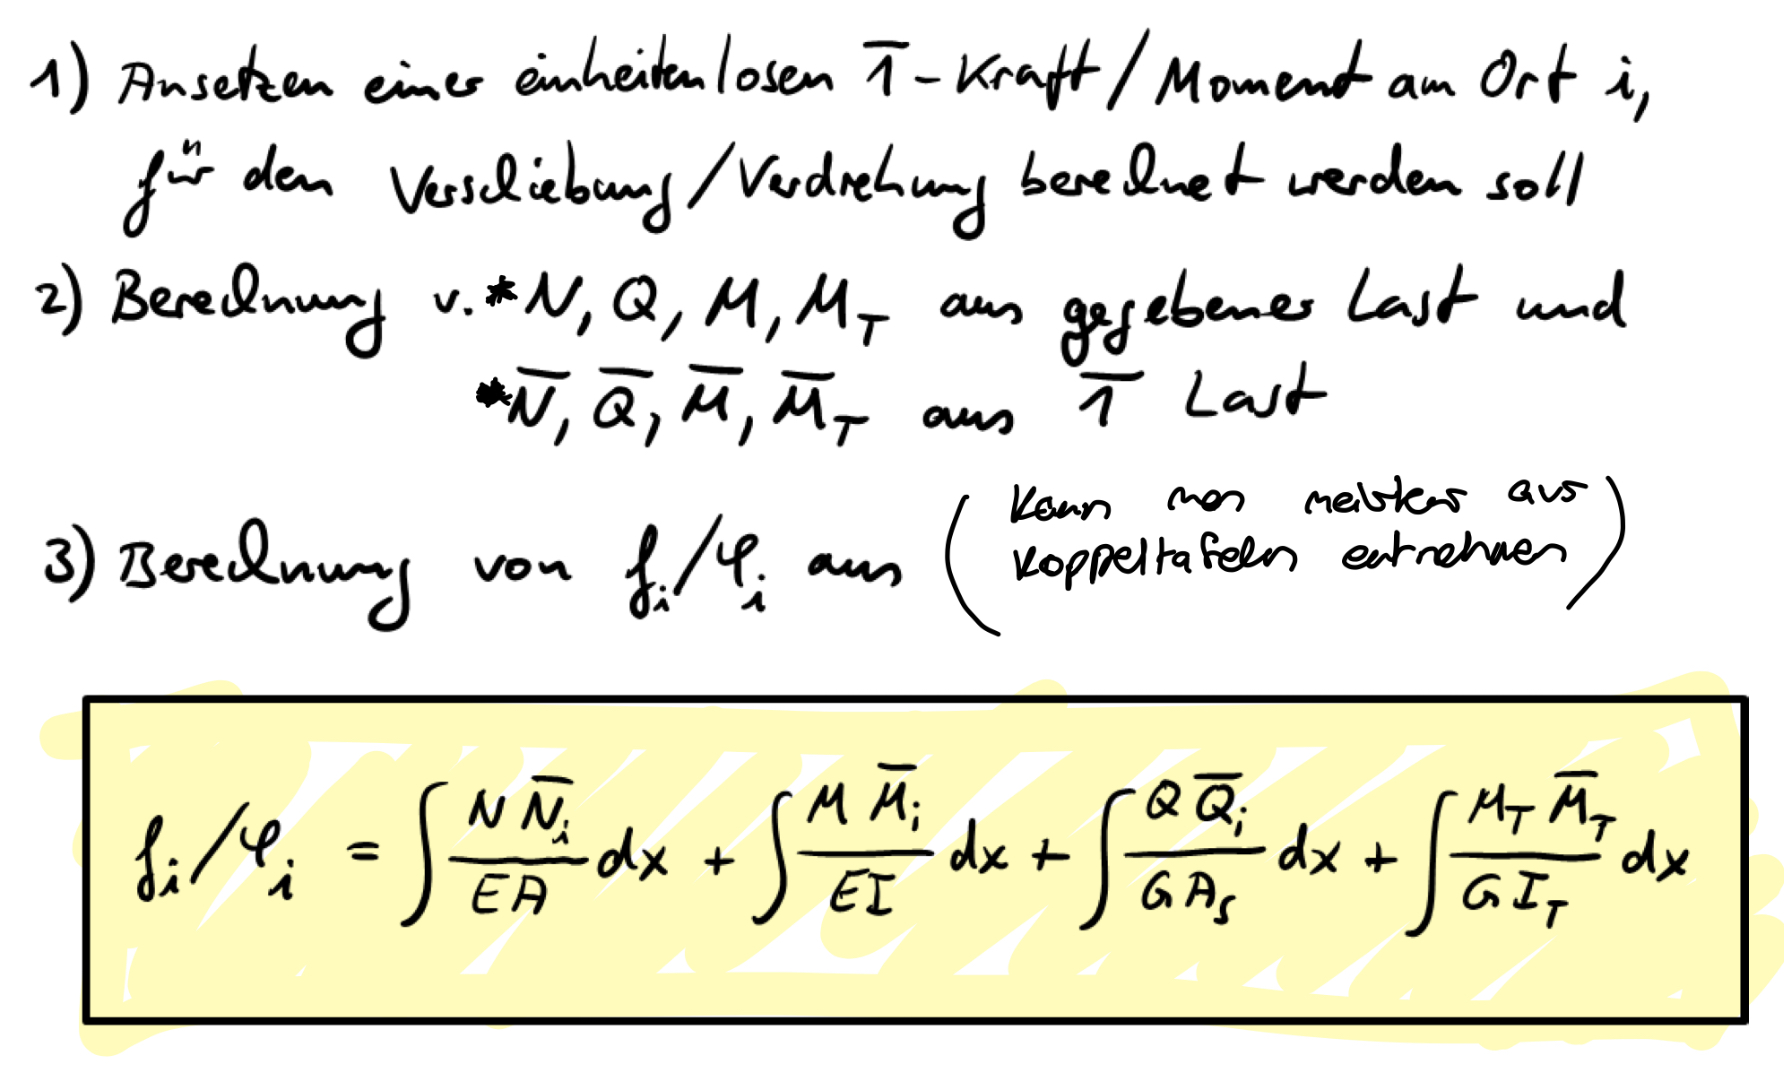 1) Ansetzen einer einheitenlosen 1̅-Kraft/Moment am Ort i,
für den Verschiebung/Verdrehung berechnet werden soll
2) Berechnung v. *N, Q, M, M_T aus gegebener Last und
*N̅, Q̅, M̅, M̅_T aus 1̅ Last
3) Berechnung von f_i/φ_i aus (Kann man meistens aus
Koppeltafeln entnehmen)
f_i/φ_i = ∫ (N N̅_i)/(EA) dx + ∫ (M M̅_i)/(EI) dx + ∫ (Q Q̅_i)/(GA_S) dx + ∫ (M_T M̅_T)/(GI_T) dx